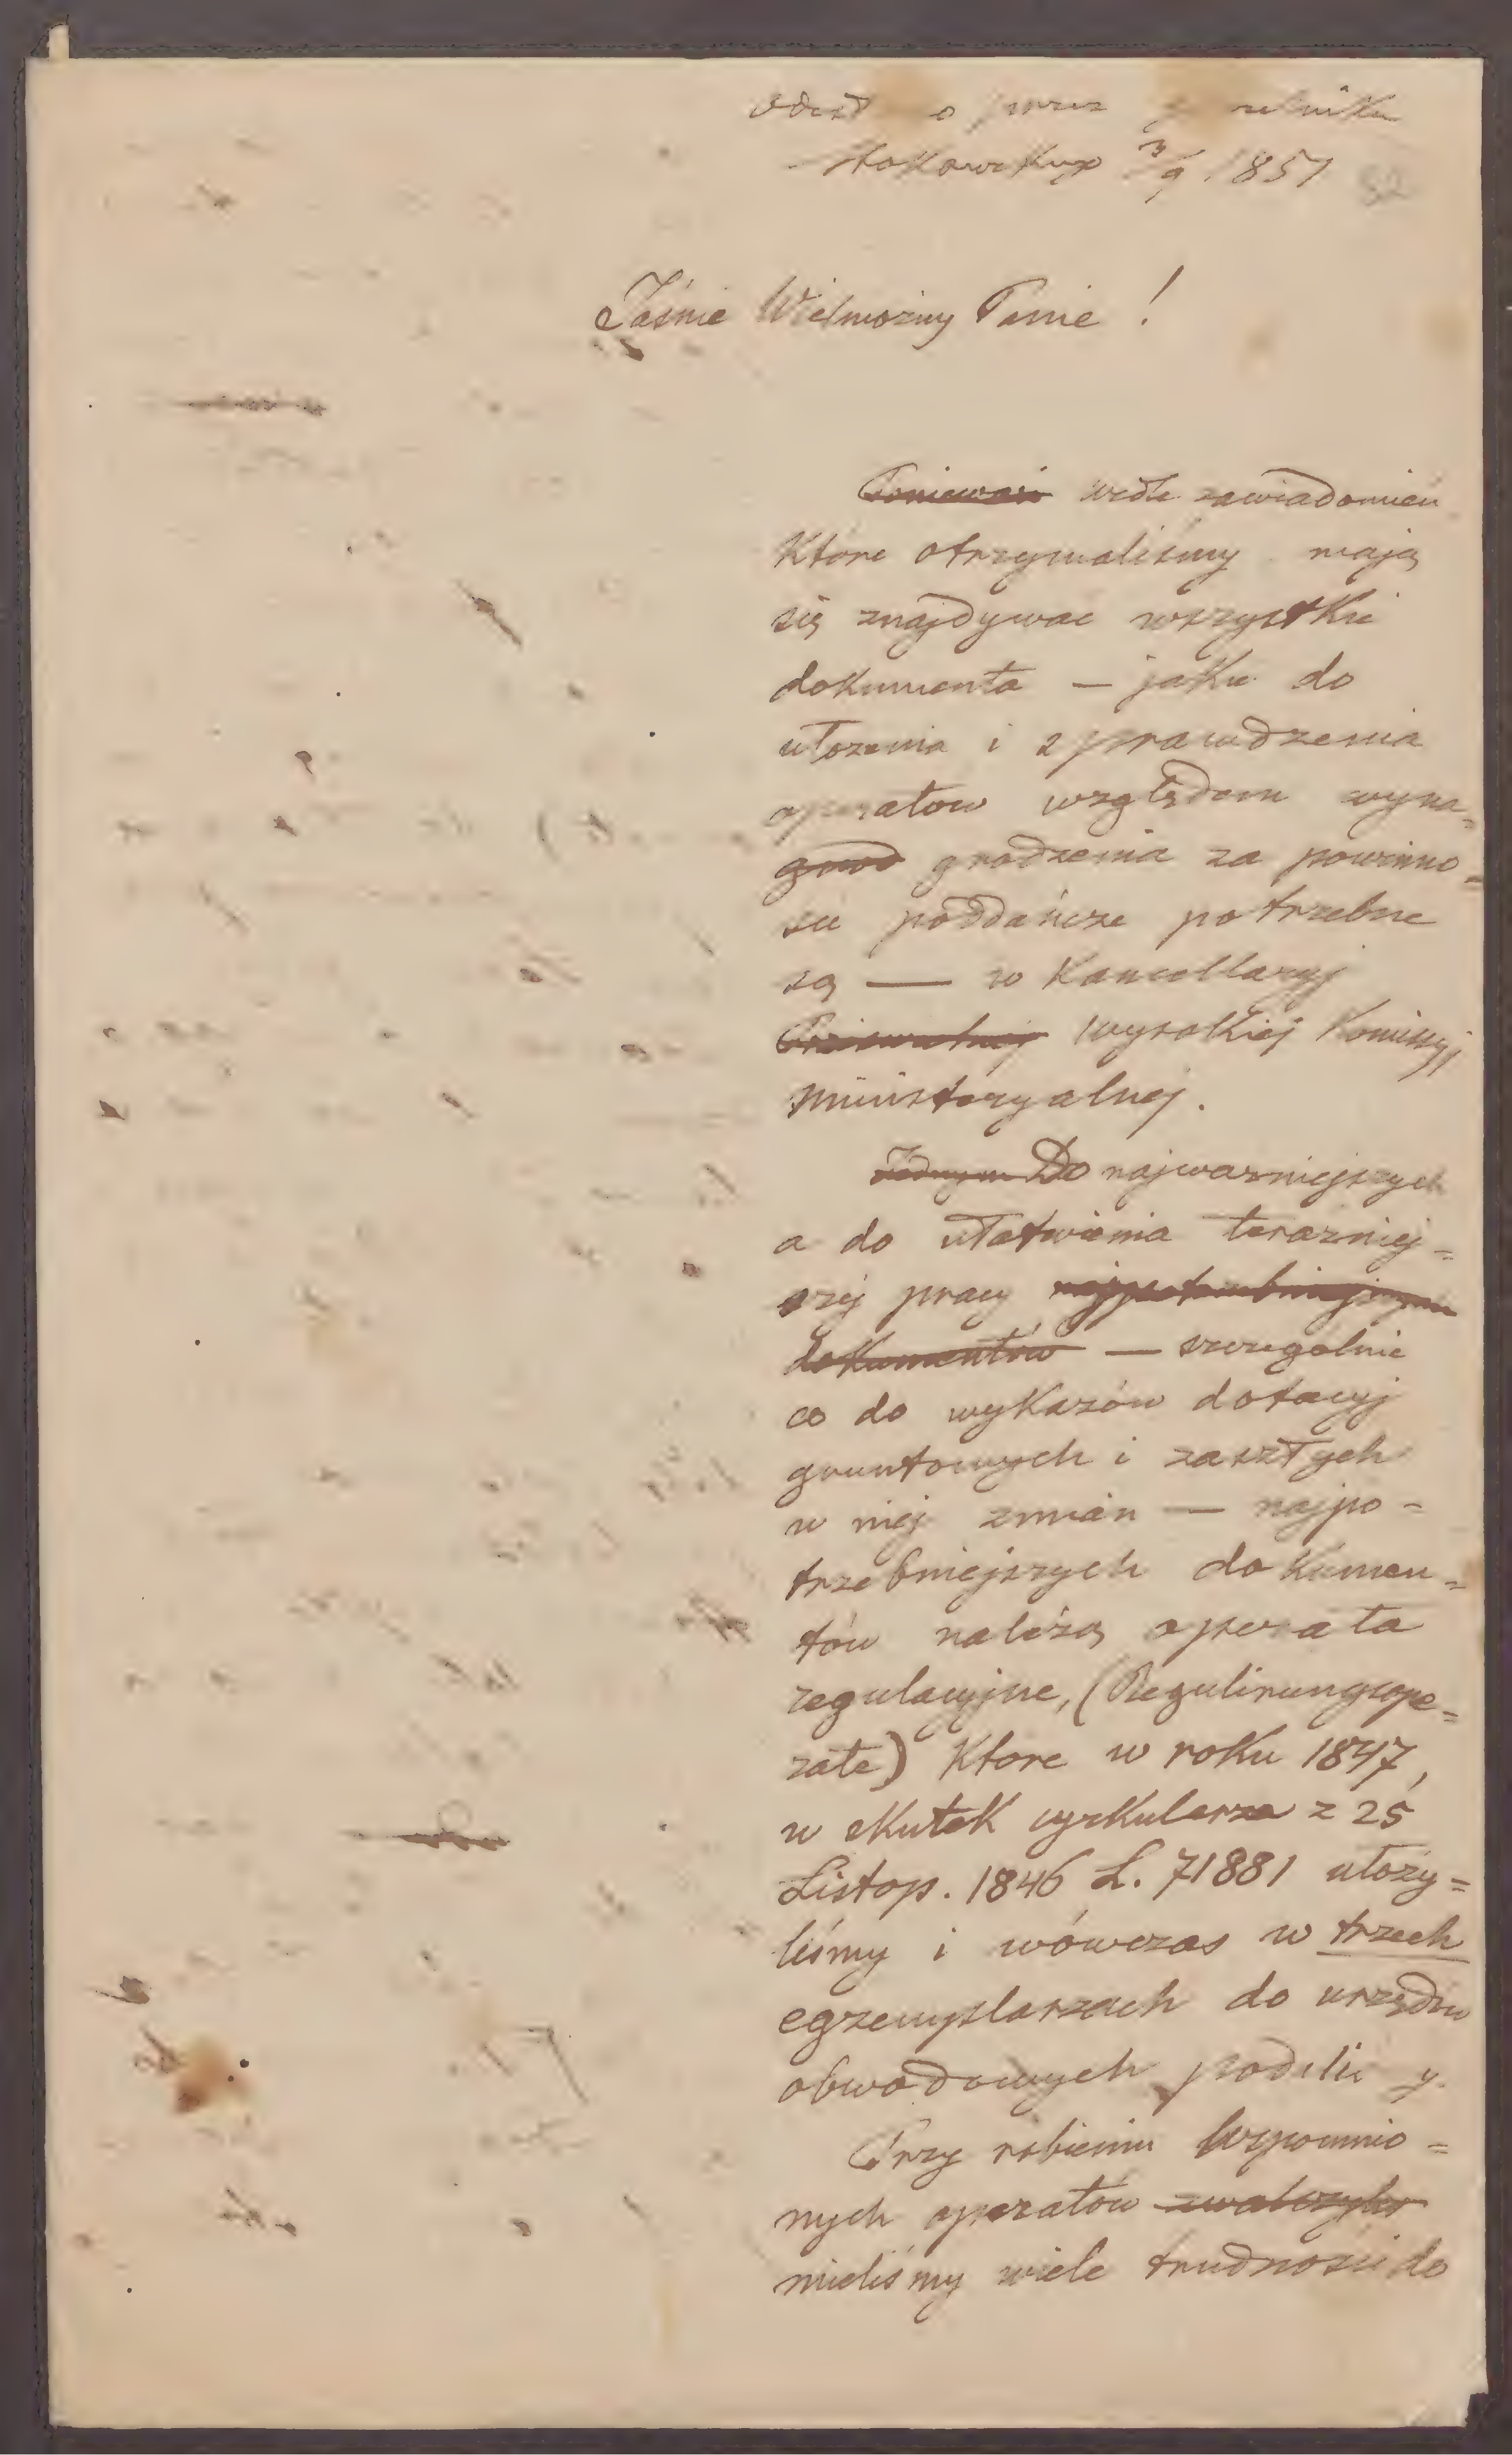 przez
3/9 1851
Jaśnie Wielmożny Panie !
Ponieważ wedle zawiadomień
które otrzymaliśmy mają
się znajdywać wszystkie
dokumenta — jakie do
ułożenia i sprawdzenia
operatow względem wyna=
grod grodzenia za powinno=
ści poddańcze potrzebne
są — w Kancellaryj
wysokiej Komissyj
ministeryalnej.
Jednym Do najważniejszych
a do ułatwienia teraźniej=
széj pracy najpotrzebniejszym
dokumentów — szczegolnie
co do wykazów dotacyj
gruntowych i zaszłych
w niéj zmian — najpo=
trzebniejszych dokumen=
tów należą operata
regulacyjne, (Regulirungsope=
rate) które w roku 1847,
w skutek cyrkularza z 25
Listop. 1846 L. 71881 ułoży=
liśmy i wówczas w trzech
egzemplarzach do urzędów
obwodowych podali
Przy robieniu wspomnio=
nych operatów
mieliśmy wiele trudności do